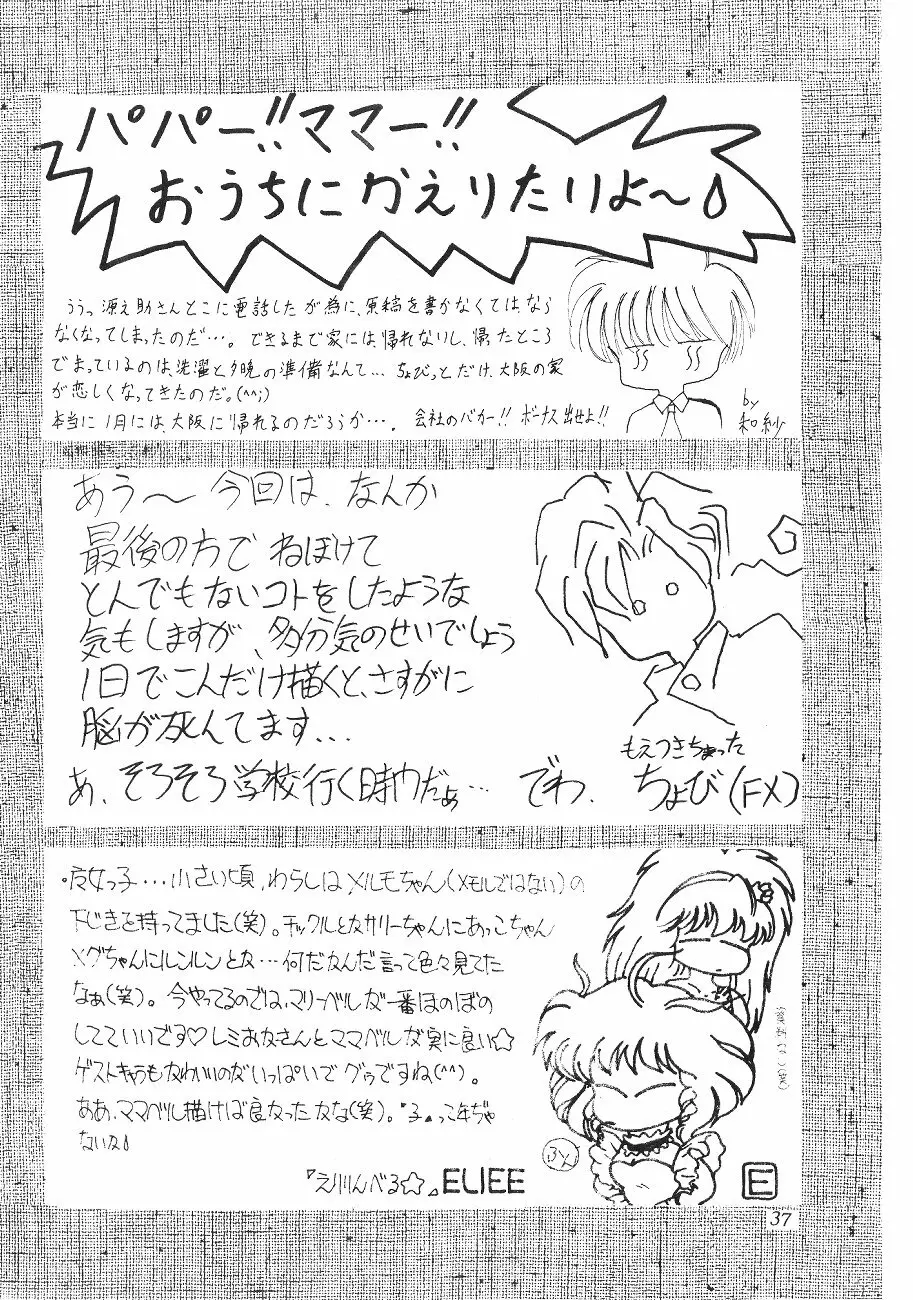 パパー!!ママー!!
おうちにかえりたりよ〜♪
ううっ源之助さんとこに電話したが為に、原稿を書かなくては、なら
なくなってしまったのだ…。できるまで家には帰れないし、帰ったところ
でまっているのは、洗濯と夕晩の準備なんて… ちょびっとだけ、大阪の家
が恋しくなってきたのだ。(^^;)
本当に1月には、大阪に帰れるのだろうか…. 会社のバカー!! ボーナス出せよ!!
by
和紗
あう〜 今回は、なんか
最後の方で ねぼけて
とんでもないコトをしたような
気もしますが、多分気のせいでしょう
1日でこんだけ描くと、さすがに
脳が死んでます...
あ、そろそろ学校行く時ウだぁ… でわ.
もえつきちゃった
ちょび(FX)
・女っ子…小さい頃,わらしはメルモちゃん(メモルではない)の
下じきを持ってました(笑)。チックルとかサリーちゃんにあっこちゃん
メグちゃんにルンルンとか…何だかんだ言って色々見てた
なぁ(笑)。今やってるのでは、マリーベルが一番ほのぼの
してていいです♡レミおかさんとママベルが実に良い☆
ゲストキャラもかわいいのがいっぱいでグゥですね(^^)。
ああ、ママベル描けば良かったかな(笑)。"子"って年ぢゃ
ないか♪
『えりりんべる☆』ELIEE
BY
E
37